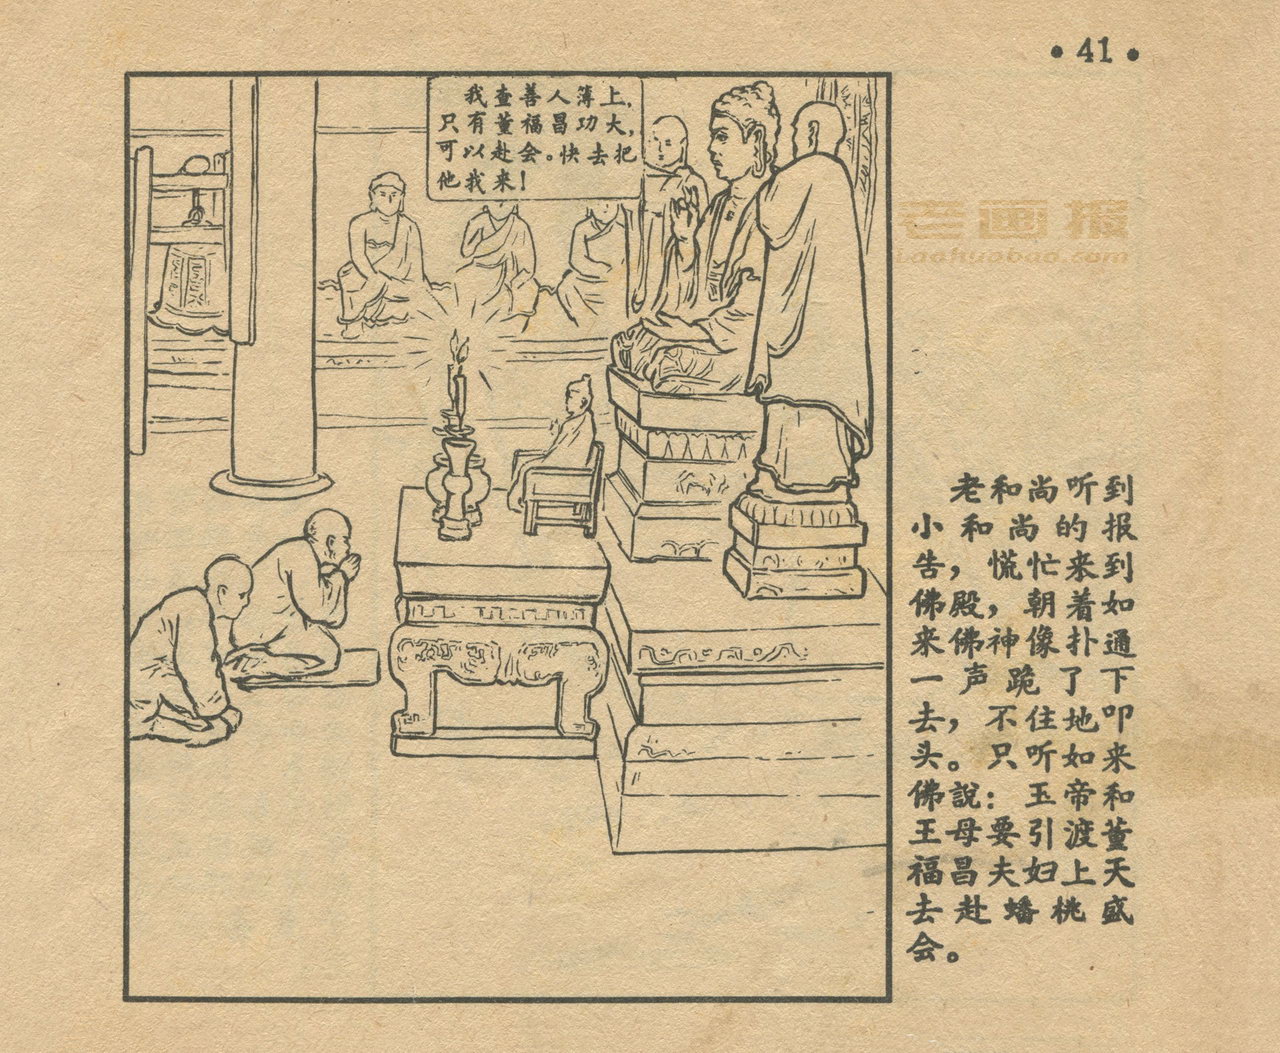 • 41 •
我查善人簿上，
只有董福昌功大，
可以赴会。快去把
他找来！
老画报
Laohuabao.com
老和尚听到
小和尚的报
告，慌忙来到
佛殿，朝着如
来佛神像扑通
一声跪了下
去，不住地叩
头。只听如来
佛說：玉帝和
王母要引渡董
福昌夫妇上天
去赴蟠桃盛
会。